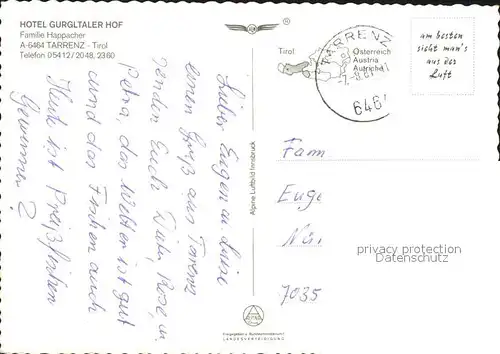 HOTEL GURGLTALER HOF
Familie Happacher
A-6464 TARRENZ - Tirol
Telefon 05412/2048, 2360
Lieber Eugen u. Luise
einen Gruß aus Tarenz
senden Euch Dieter, Rosi, u
Petra, das Wetter ist gut
und das Fischen auch
Heute ist Preisfischen
Gewinnen?
Alpine Luftbild Innsbruck
LANDESVERTEIDIGUNG
Tirol
TARRENZ
Österreich
Austria
Autriche
6464
am besten
sieht man's
aus der
Luft
Fam
Euge
7035
privacy protection
Datenschutz